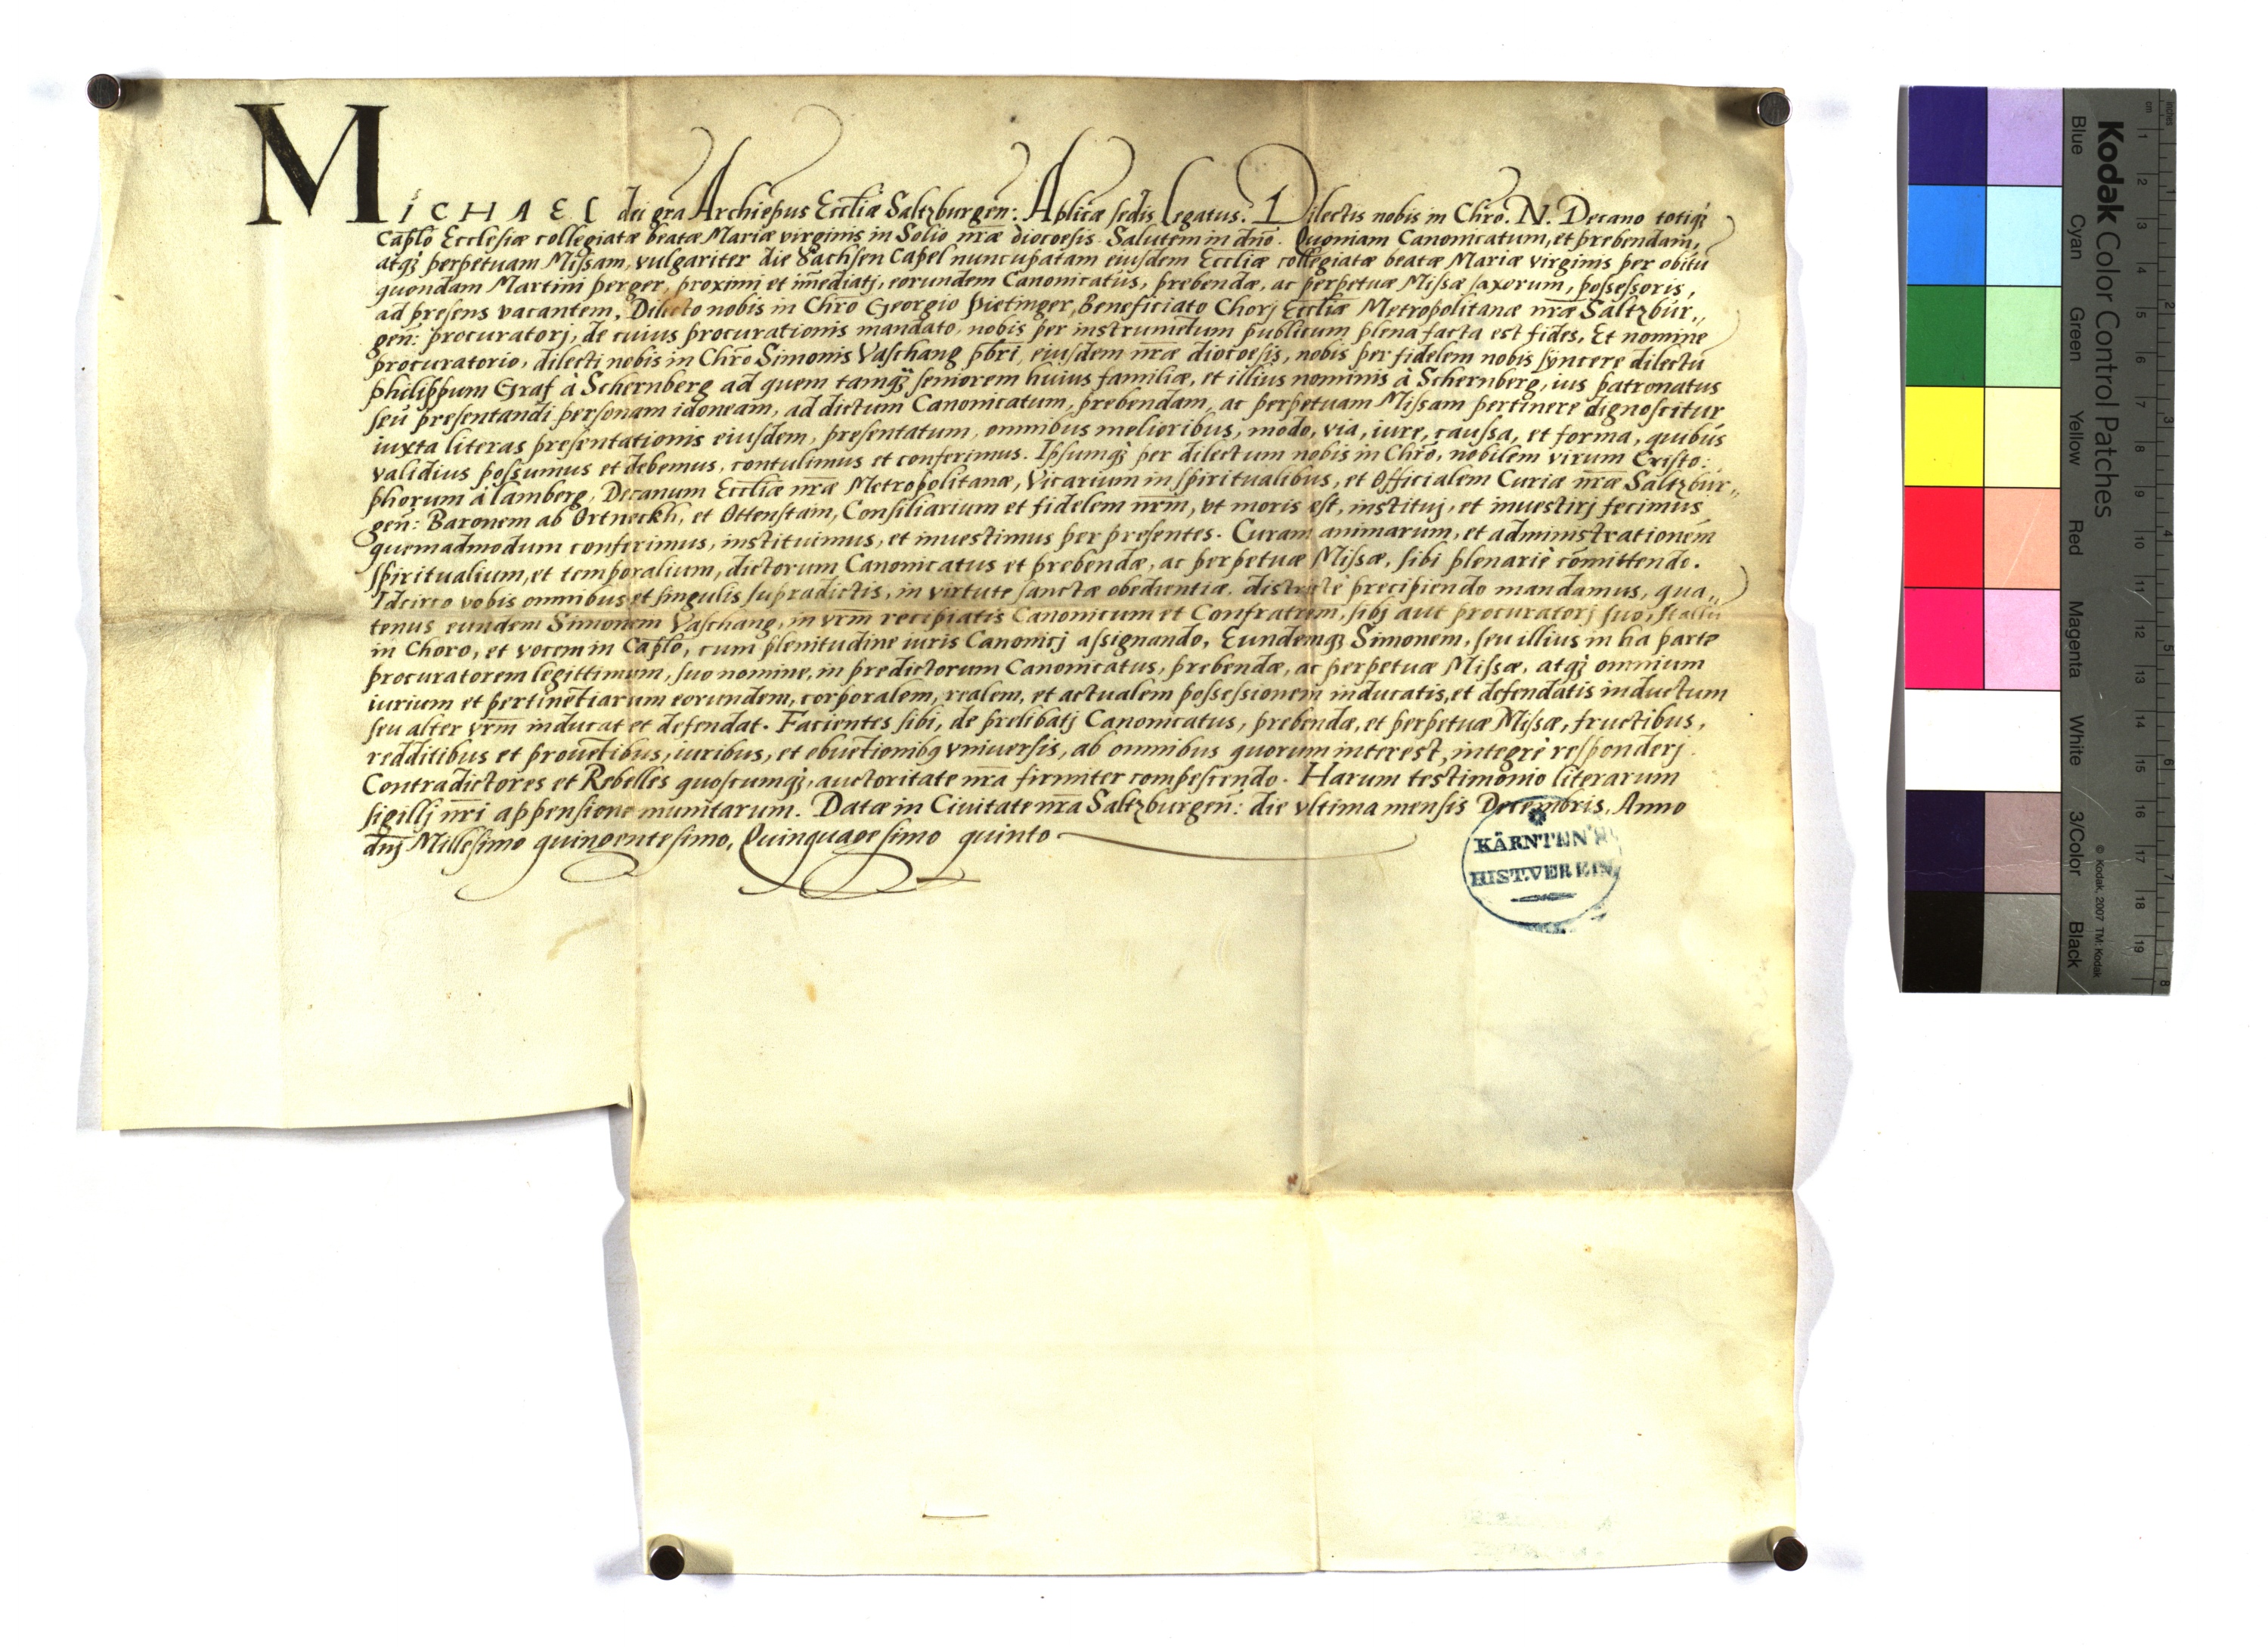 MICHAEL dei gra Archiepus Eccliæ Saltzburgen: Aplicæ sedis legatus. Dilectis nobis in Chro. N. Decano totiqȝ
Caplo Ecclesiæ collegiatæ beatæ Mariæ virginis in Solio nræ diocoesis Salutem in dno. Quoniam Canonicatum, et prebendam,
atqȝ perpetuam Missam, vulgariter die Sachsen Capel nuncupatam eiusdem Eccliæ collegiatæ beatæ Mariæ virginis per obitū
quondam Martini perger, proximi et im̄ediatj, eorundem Canonicatus, prebendæ, ac perpetuæ Missæ saxorum, possessoris,
ad presens vacantem, Dilecto nobis in Chro Georgio Pietinger, Beneficiato Chorj Eccliæ Metropolitanæ nræ Saltzbur„
gen: procuratorj, de cuius procurationis mandato, nobis per instrumētum publicum plena facta est fides, Et nomine
procuratorio, dilecti nobis in Chro Simonis Vaschang pbri, eiusdem nræ diocoesis, nobis per fidelem nobis syncere dilectū
philippum Graf à Schernberg ad quem tamqȝ seniorem huius familiæ, et illius nominis à Schernberg, ius patronatus
seu presentandi personam idoneam, ad dictum Canonicatum, prebendam, ac perpetuam Missam pertinere dignoscitur
iuxta literas presentationis eiusdem, presentatum, omnibus melioribus, modo, via, iure, caussa, et forma, quibus
validius possumus et debemus, contulimus et conferimus. Ipsumqȝ per dilectum nobis in Chro, nobilem virum Cristo:
phorum à lamberg, Decanum Eccliæ nræ Metropolitanæ, Vicarium in spiritualibus, et Officialem Curiæ nræ Saltzbur„
gen: Baronem ab Ortneckh, et Ottenstain, Consiliarium et fidelem nrm, vt moris est, instituj, et inuestirj fecimus
quemadmodum conferimus, instituimus, et inuestimus per presentes. Curam animarum, et administrationem
spiritualium, et temporalium, dictorum Canonicatus et prebendæ, ac perpetuæ Missæ, sibi plenariè com̄ittendo.
Idcirco vobis omnibus et singulis supradictis, in virtute sanctæ obedientiæ, districtè precipiendo mandamus, qua„
tenus eundem Simonem Vaschang, in vrm recipiatis Canonicum et Confratrem, sibj aut procuratorj suo, stallū
in Choro, et vocem in Caplo, cum plenitudine iuris Canonicj assignando, Eundemqȝ Simonem, seu illius in ha parte
procuratorem legittimum, suo nomine, in predictorum Canonicatus, prebendæ, ac perpetuæ Missæ, atqȝ omnium
iurium et pertinētiarum eorundem, corporalem, realem, et actualem possessionem inducatis, et defendatis inductum
seu alter vrm inducat et defendat. Facientes sibi, de prelibatj Canonicatus, prebendæ, et perpetuæ Missæ, fructibus,
redditibus et prouētibus, iuribus, et obuētionibꝰ vniuersis, ab omnibus quorum interest, integrè responderj.
Contradictores et Rebelles quoscumqȝ, auctoritate nra firmiter compescendo. Harum testimonio literarum
sigillj nri appensione munitarum. Datæ in Ciuitate nra Saltzburgen: die vltima mensis Decembris, Anno
dnj Millesimo quingentesimo, Quinquagesimo quinto
KÄRNTEN'R
HIST.VEREIN
Kodak Color Control Patches
Blue Cyan Green Yellow Red Magenta White 3/Color Black
© Kodak, 2007 TM: Kodak
cm 1 2 3 4 5 6 7 8 9 10 11 12 13 14 15 16 17 18 19
inches 1 2 3 4 5 6 7 8